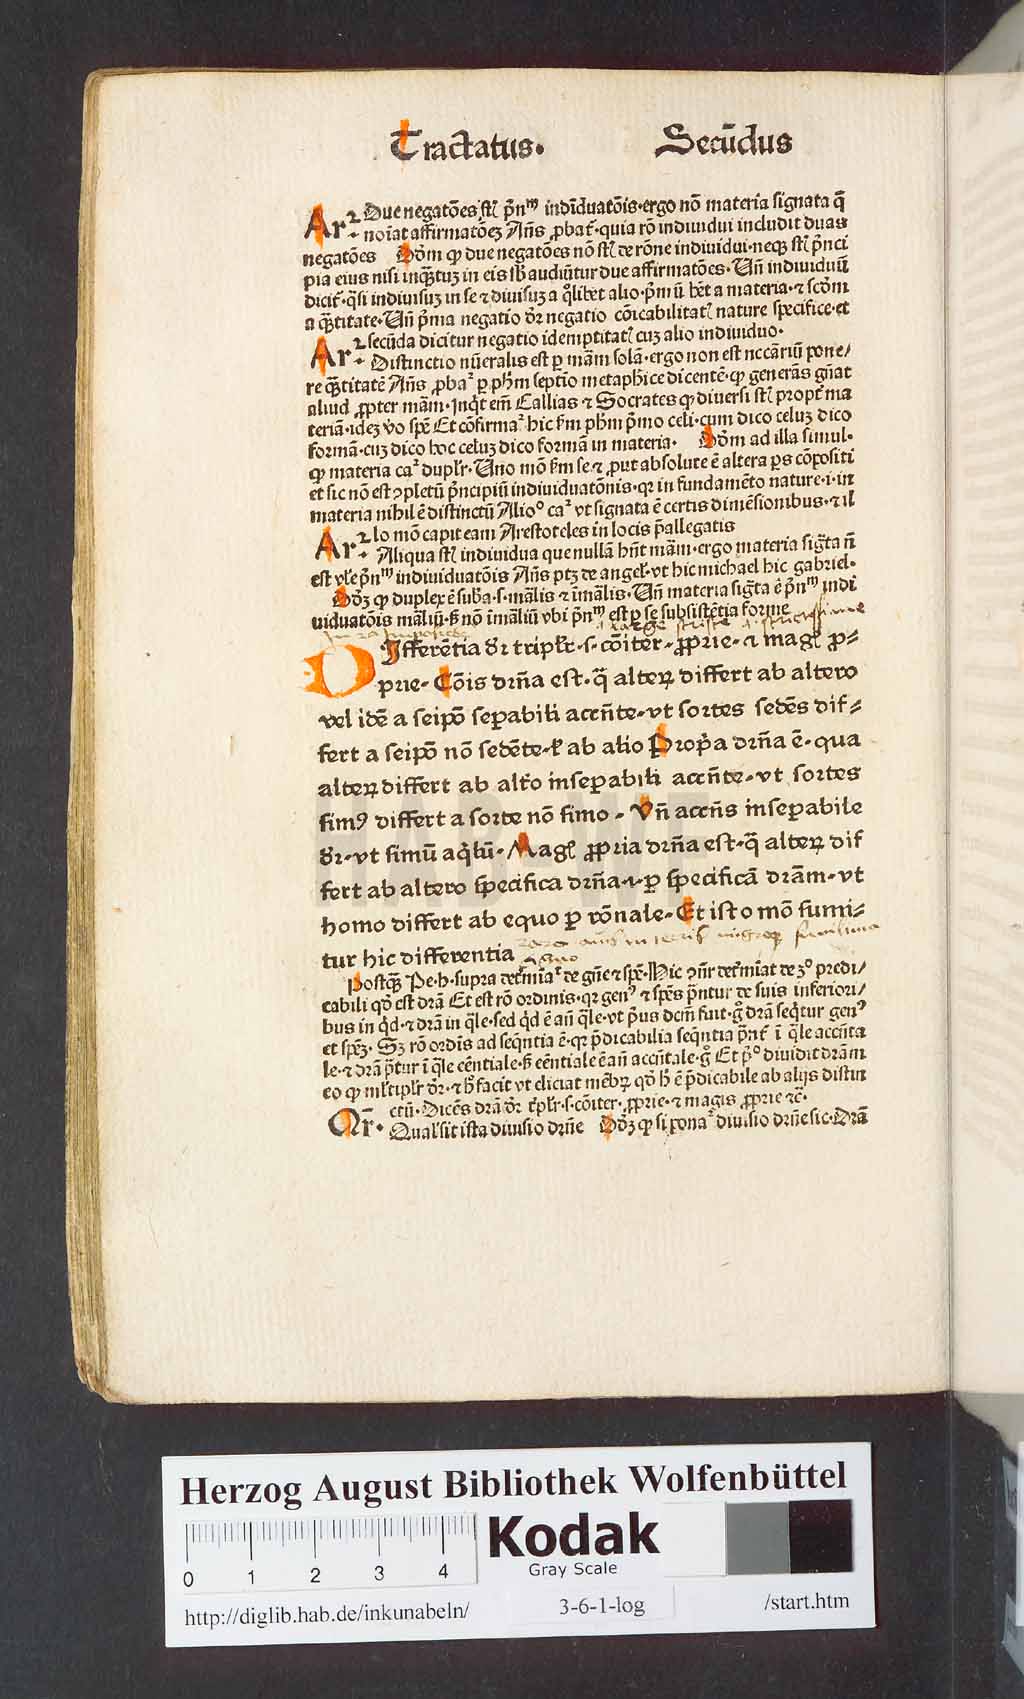 Tractatus. Secūdus
Ar⁊ Due negatōes st̄ p̄nᵐ indiduatōis·ergo nō materia signata q̄
noīat affirmatōeʒ Añs ꝓbat̉·quia rō indiuidui includit duas
negatōes Dōm ꝙ due negatōes nō st̄ de rōne indiuidui·neqꝫ st̄ p̄nci
pia eius nisi inqꝫtuʒ in eis sb̄audiūtur due affirmatōes·Vñ indiuiduū
dicit̉·q̄si indiuisuʒ in se ⁊ diuisuʒ a qͦlibet alio·pͥm ū hēt a materia·⁊ scōm
a qꝫtitate·Vñ pͥma negatio dr̄ negatio cōicabilitatꝭ nature specifice·et
secūda dicitur negatio idemptitatꝭ cuʒ alio indiuiduo·
Ar⁊ Distinctio nūeralis est ꝑ mām solā·ergo non est nccāriū pone/
re qꝫtitatē Añs ꝓba² ꝑ pħm septīo metapħice dicentē·ꝙ generās gn̄at
aliud ꝓpter mām·Inqͥt em̄ Callias ⁊ Socrates ꝙ diuersi st̄ propt̉ ma
teriā·ideʒ v̄o spē Et cōfirma² hic km̄ pħm pͥmo celi·cum dico celuʒ dico
formā·cuʒ dico hoc celuʒ dico formā in materia· Dōm ad illa simul·
ꝙ materia ca² duplr̄·Uno mō km̄ se·⁊ ꝓut absolute ē altera ꝑs cōpositi
et sic nō est ꝯpletū p̄ncipiū indiuiduatōnis·qꝛ in fundamēto nature·i·in
materia nihil ē distinctū Alioº ca² vt signata ē certis dimēsionibus·⁊ il
lo mō capit eam Arestoteles in locis p̄allegatis
Ar⁊ Aliqua st̄ indiuidua que nullā hn̄t mām·ergo materia sigͣta n̄
est vl̄e p̄nᵐ indiuiduatōis Añs ptʒ de angel̉·vt hic michael hic gabriel·
Dōʒ ꝙ duplex ē suba·s·māl̄is ⁊ imāl̄is·Vñ materia sigͣta ē p̄nᵐ indi
uiduatōis māl̄iū·s̄ nō imāl̄iū vbi p̄nᵐ est ꝑ se subsistētia forme
DIfferētia dr̄ triplr̄·s·cōiter·ꝓprie·⁊ magꝭ ꝓ-
prie· Cōis dr̄n̄a est·q̄ alterꝝ differt ab altero
vel idē a seipō seperabili accn̄te·vt sortes sedēs dif-
fert a seipō nō sedēte·ł ab alio Propͥa dr̄n̄a ē·qua
alterꝝ differt ab alt̉o inseperabili accn̄te·vt sortes
simꝰ differt a sorte nō simo· Vñ accn̄s inseperabile
dr̄·vt simū aqͥlū· Magꝭ ꝓpria dr̄n̄a est·q̄ alterꝝ dif
fert ab altero specifica dr̄n̄a·ꝛ ꝑ specificā drām·vt
homo differt ab equo ꝑ rōnale· Et isto mō sumi-
tur hic differentia
Postqꝫ Pe·h·supra det̉mīa² de gn̄e ⁊ spē·Hic ꝯn̄r det̉mīat de 3º predi/
cabili qd̄ est drā Et est rō ordinis·qꝛ genꝰ ⁊ spēs p̄ntur de suis inferiori/
bus in qͥd·⁊ drā in qͣle·sed qͥd ē an̄ qͣle·vt pͥus dcm̄ fuit·gͦ drā seqͥtur genꝰ
et spēʒ· Sʒ rō ordīs ad seqn̄tia ē·qꝛ p̄dicabilia seqn̄tia p̄nt̉ ī qͣle accn̄ta
le·⁊ drā p̄tur ī qͣle cēntiale·s̄ cēntiale ē an̄ accn̄tale·gͦ Et pͥº diuidit drām
eo ꝙ ml̄tiplr̄ dr̄·⁊ h̄ facit vt eliciat mēbꝝ qd̄ h̄ ē p̄dicabile ab alijs distin
ctū·Dicēs drā dr̄ tͥplr̄·s·cōiter·ꝓprie·⁊ magis ꝓprie ⁊c̄·
Qr̄· Qual̉ sit ista diuisio dr̄n̄e Dōʒ ꝙ si pona² diuisio dr̄n̄e sic·Drā
HAB WF
Herzog August Bibliothek Wolfenbüttel
0 1 2 3 4
Kodak
Gray Scale
http://diglib.hab.de/inkunabeln/ 3-6-1-log /start.htm